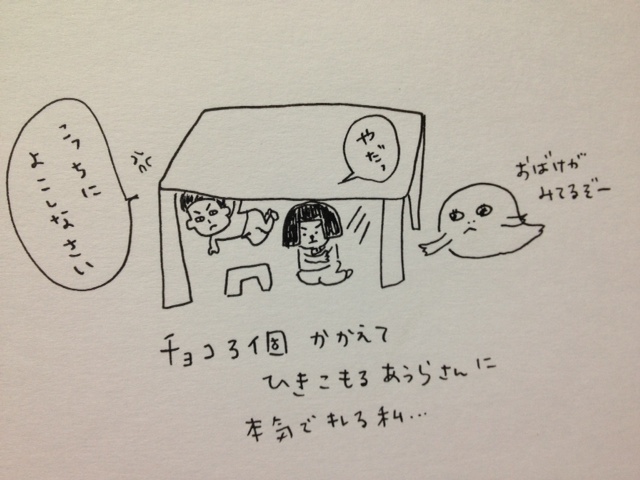 こっちに
よこしなさい
やだっ
おばけが
みてるぞー
チョコ3個 かかえて
ひきこもる あうらさんに
本気でキレる私…